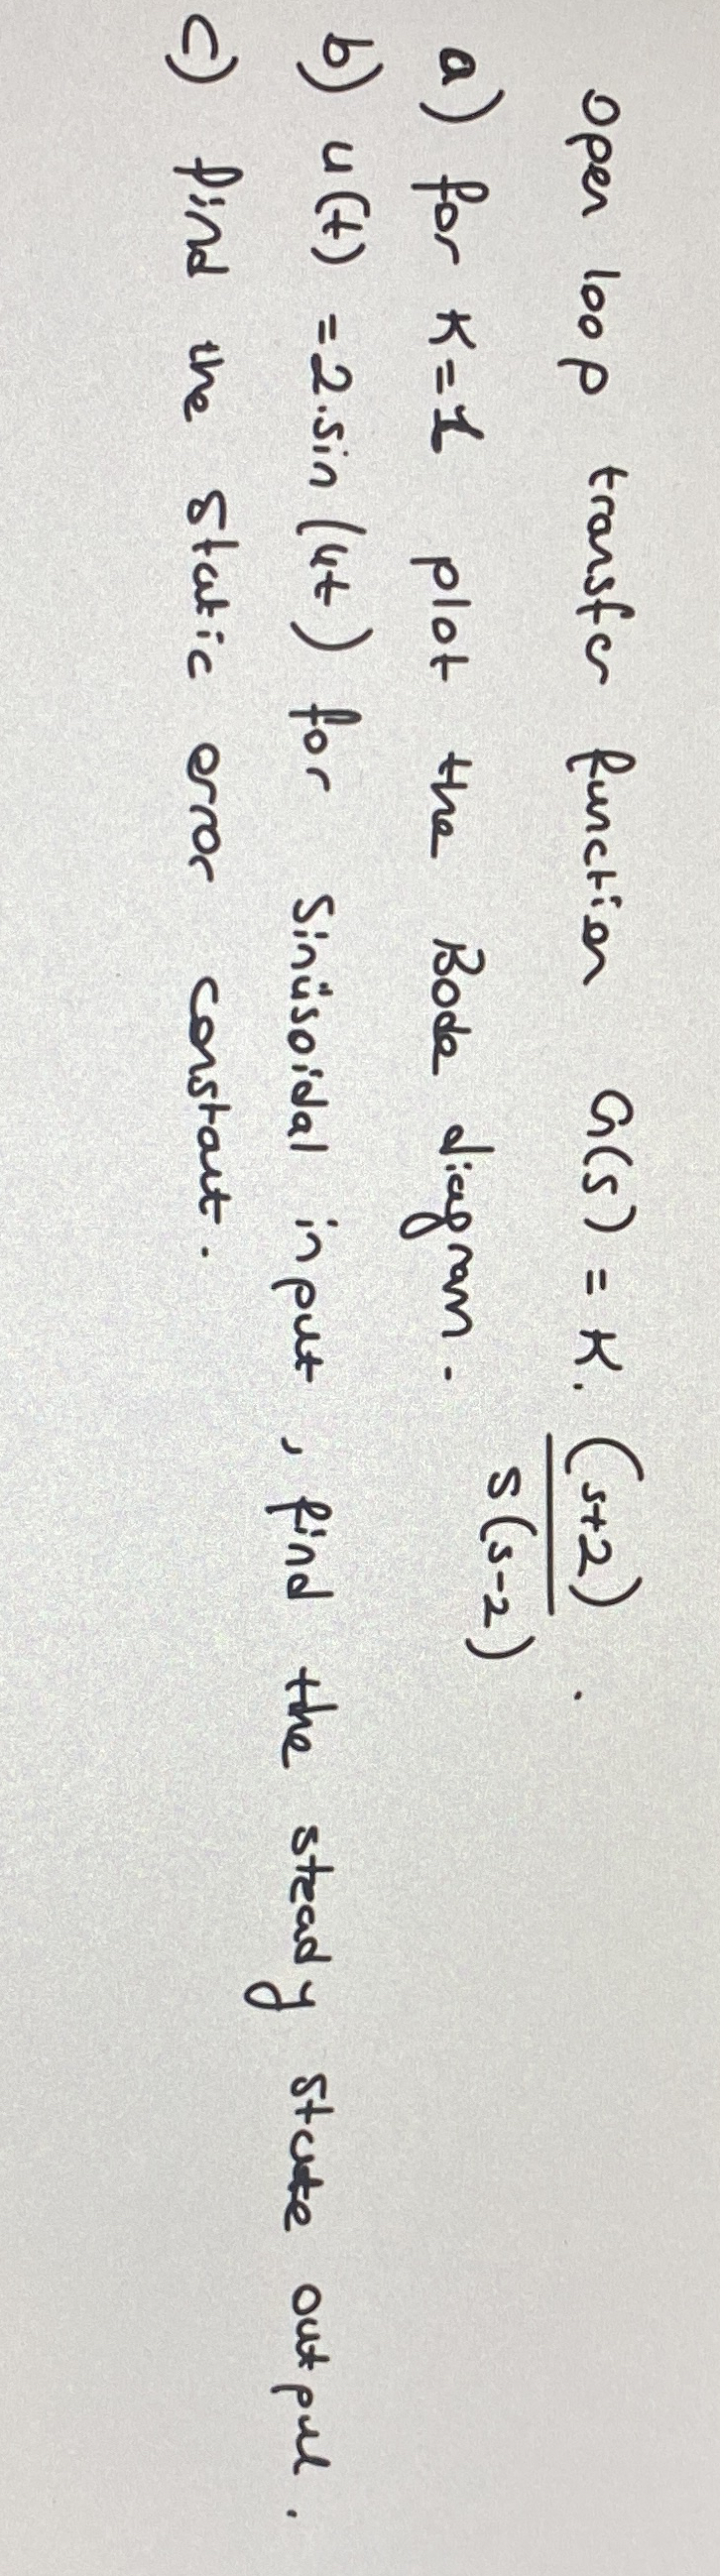 open loop transfer function G(s) = K. (s+2) / s(s-2) .
a) for K=1 plot the Bode diagram.
b) u(t) =2.sin(4t) for sinüsoidal input, find the steady state output.
c) find the static error constant.